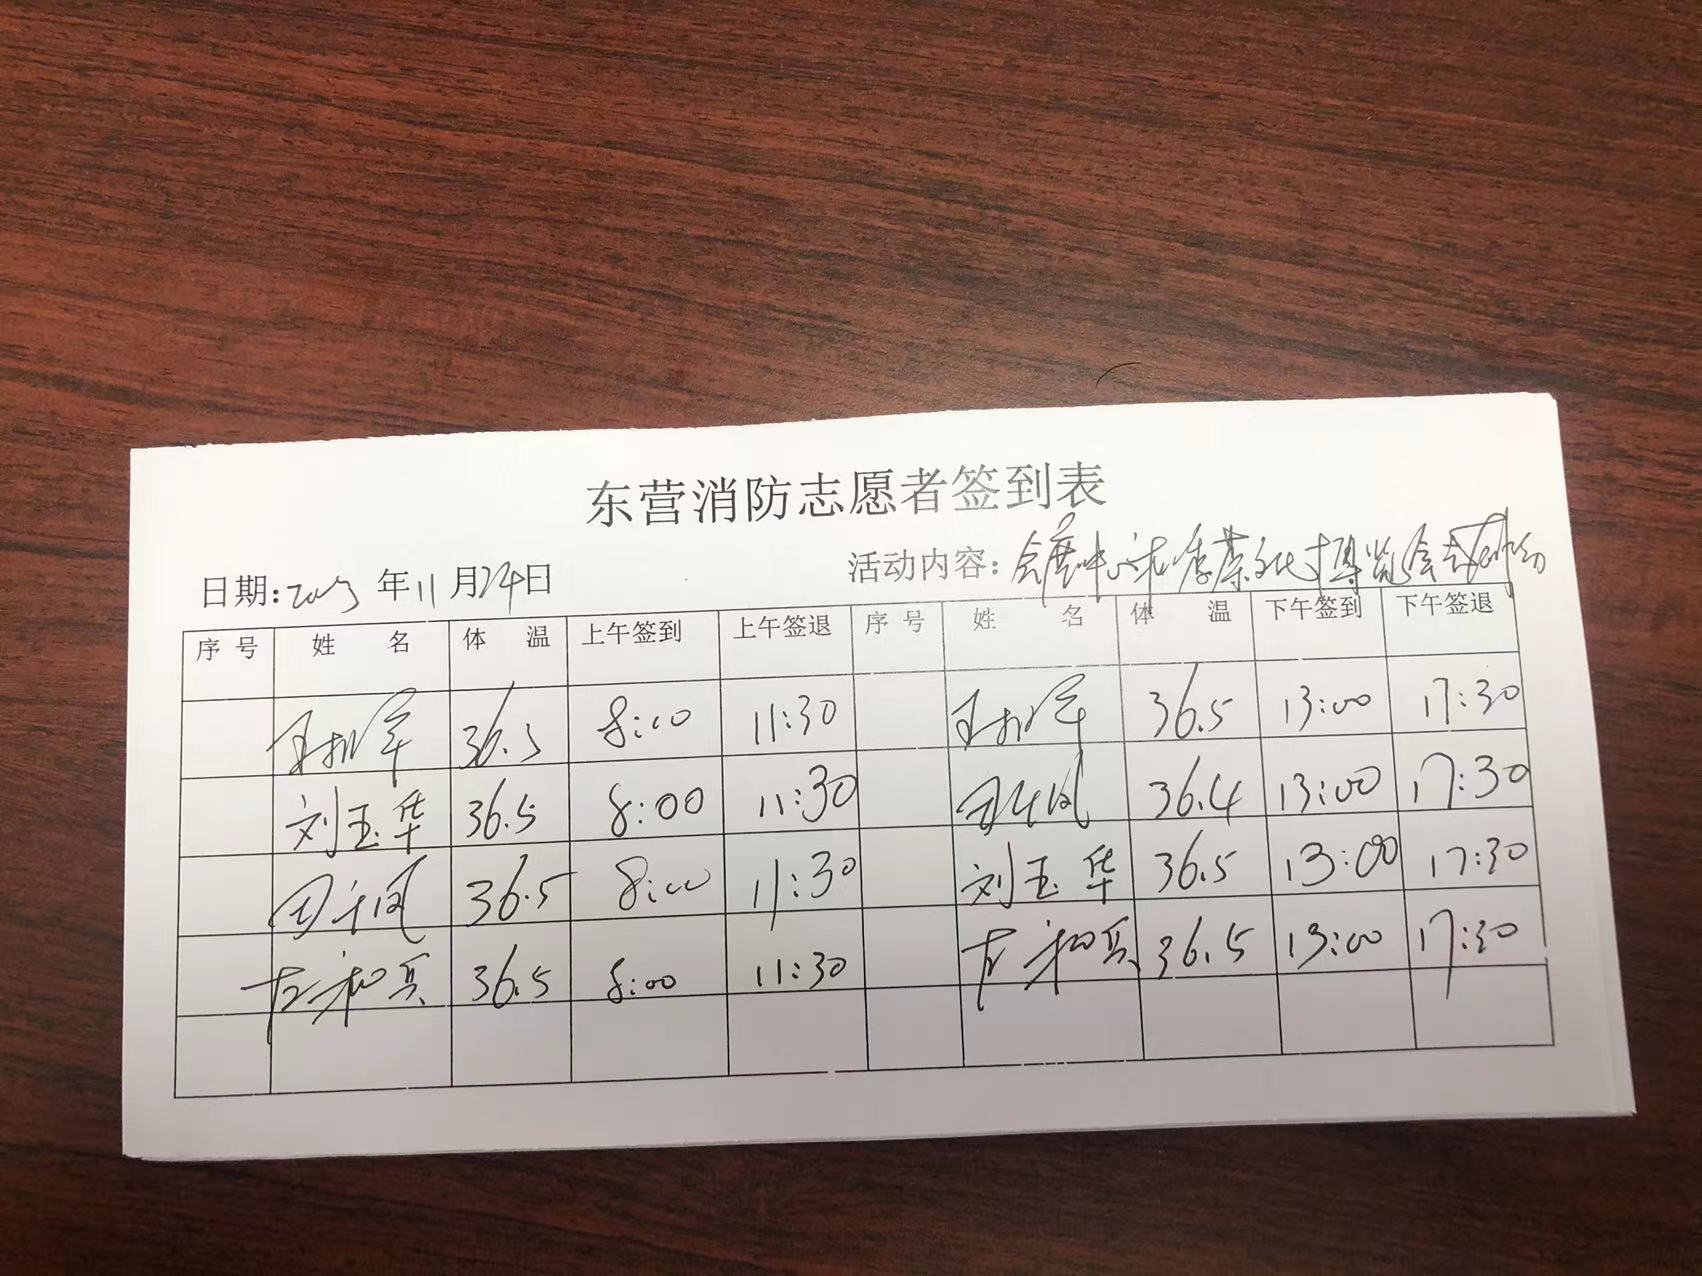 东营消防志愿者签到表
日期: 2023 年 11 月 24 日 活动内容: 会展中心 季茶文化博览会
序号 姓名 体温 上午签到 上午签退 序号 姓名 体温 下午签到 下午签退
36.5 8:00 11:30 36.5 13:00 17:30
刘玉华 36.5 8:00 11:30 36.4 13:00 17:30
36.5 8:00 11:30 刘玉华 36.5 13:00 17:30
左和兵 36.5 8:00 11:30 左和兵 36.5 13:00 17:30